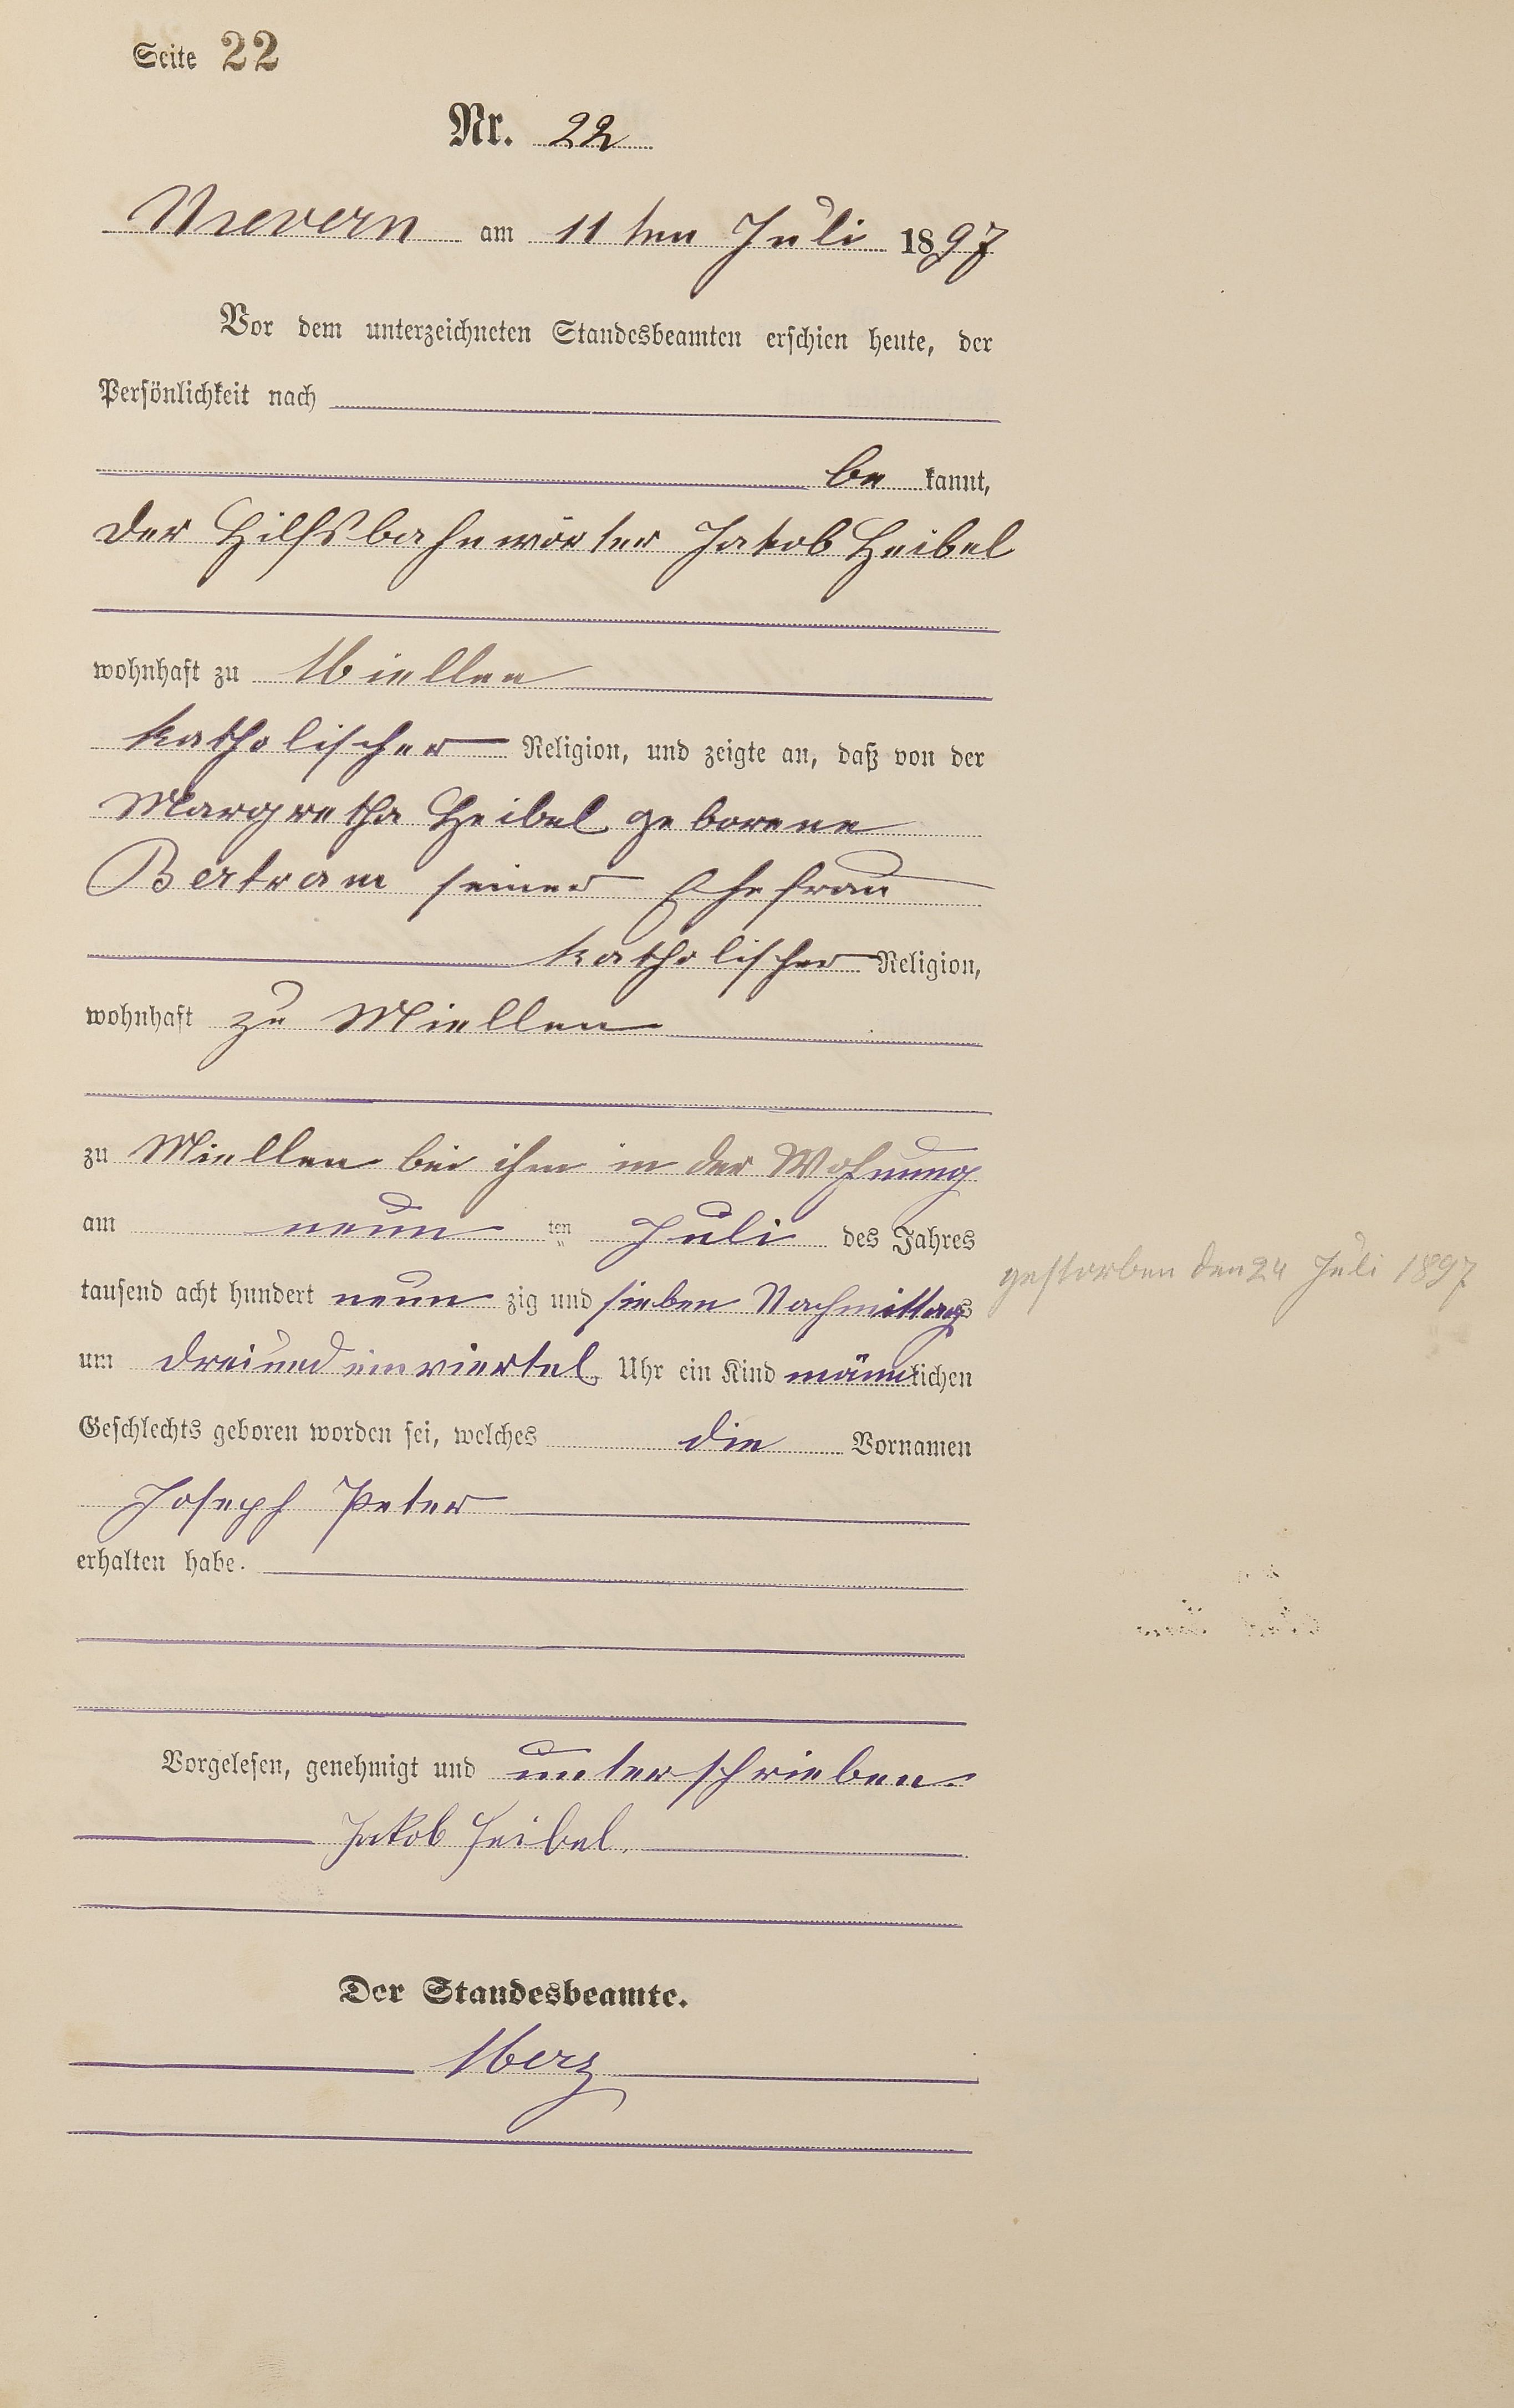 Seite 22
Nr. 22
Nievern am 11ten Juli 1897
Vor dem unterzeichneten Standesbeamten erschien heute, der
Persönlichkeit nach
be kannt,
der Hilfsbahnwärter Jakob Heibel
wohnhaft zu Miellen
katholischer Religion, und zeigte an, daß von der
Margretha Heibel geborene
Bertram seiner Ehefrau
katholischer Religion,
wohnhaft zu Miellen
zu Miellen bei ihm in der Wohnung
am neun ten Juli des Jahres
tausend acht hundert neun zig und sieben Nachmittags
gestorben den 24 Juli 1897
um drei und ein viertel Uhr ein Kind männlichen
Geschlechts geboren worden sei, welches die Vornamen
Joseph Peter
erhalten habe.
Vorgelesen, genehmigt und unterschrieben.
Jakob Heibel.
Der Standesbeamte.
Merz